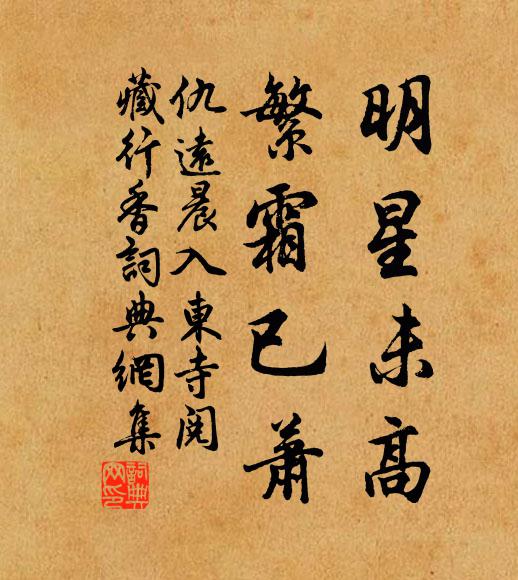 明星未高
繁霜已蕭
仇遠晨入東寺閱
藏行香詞典網集
詞典网印